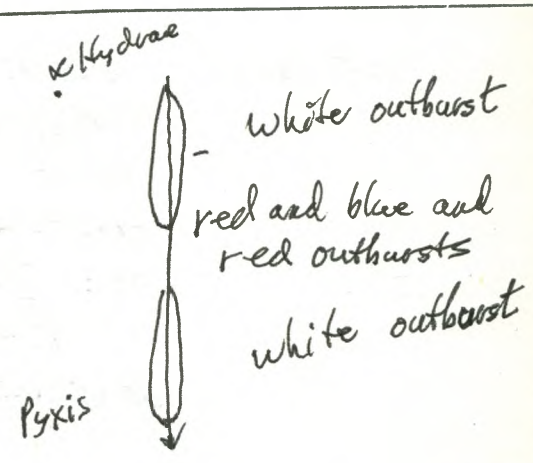 α Hydrae
white outburst
red and blue and
red outbursts
white outburst
Pyxis